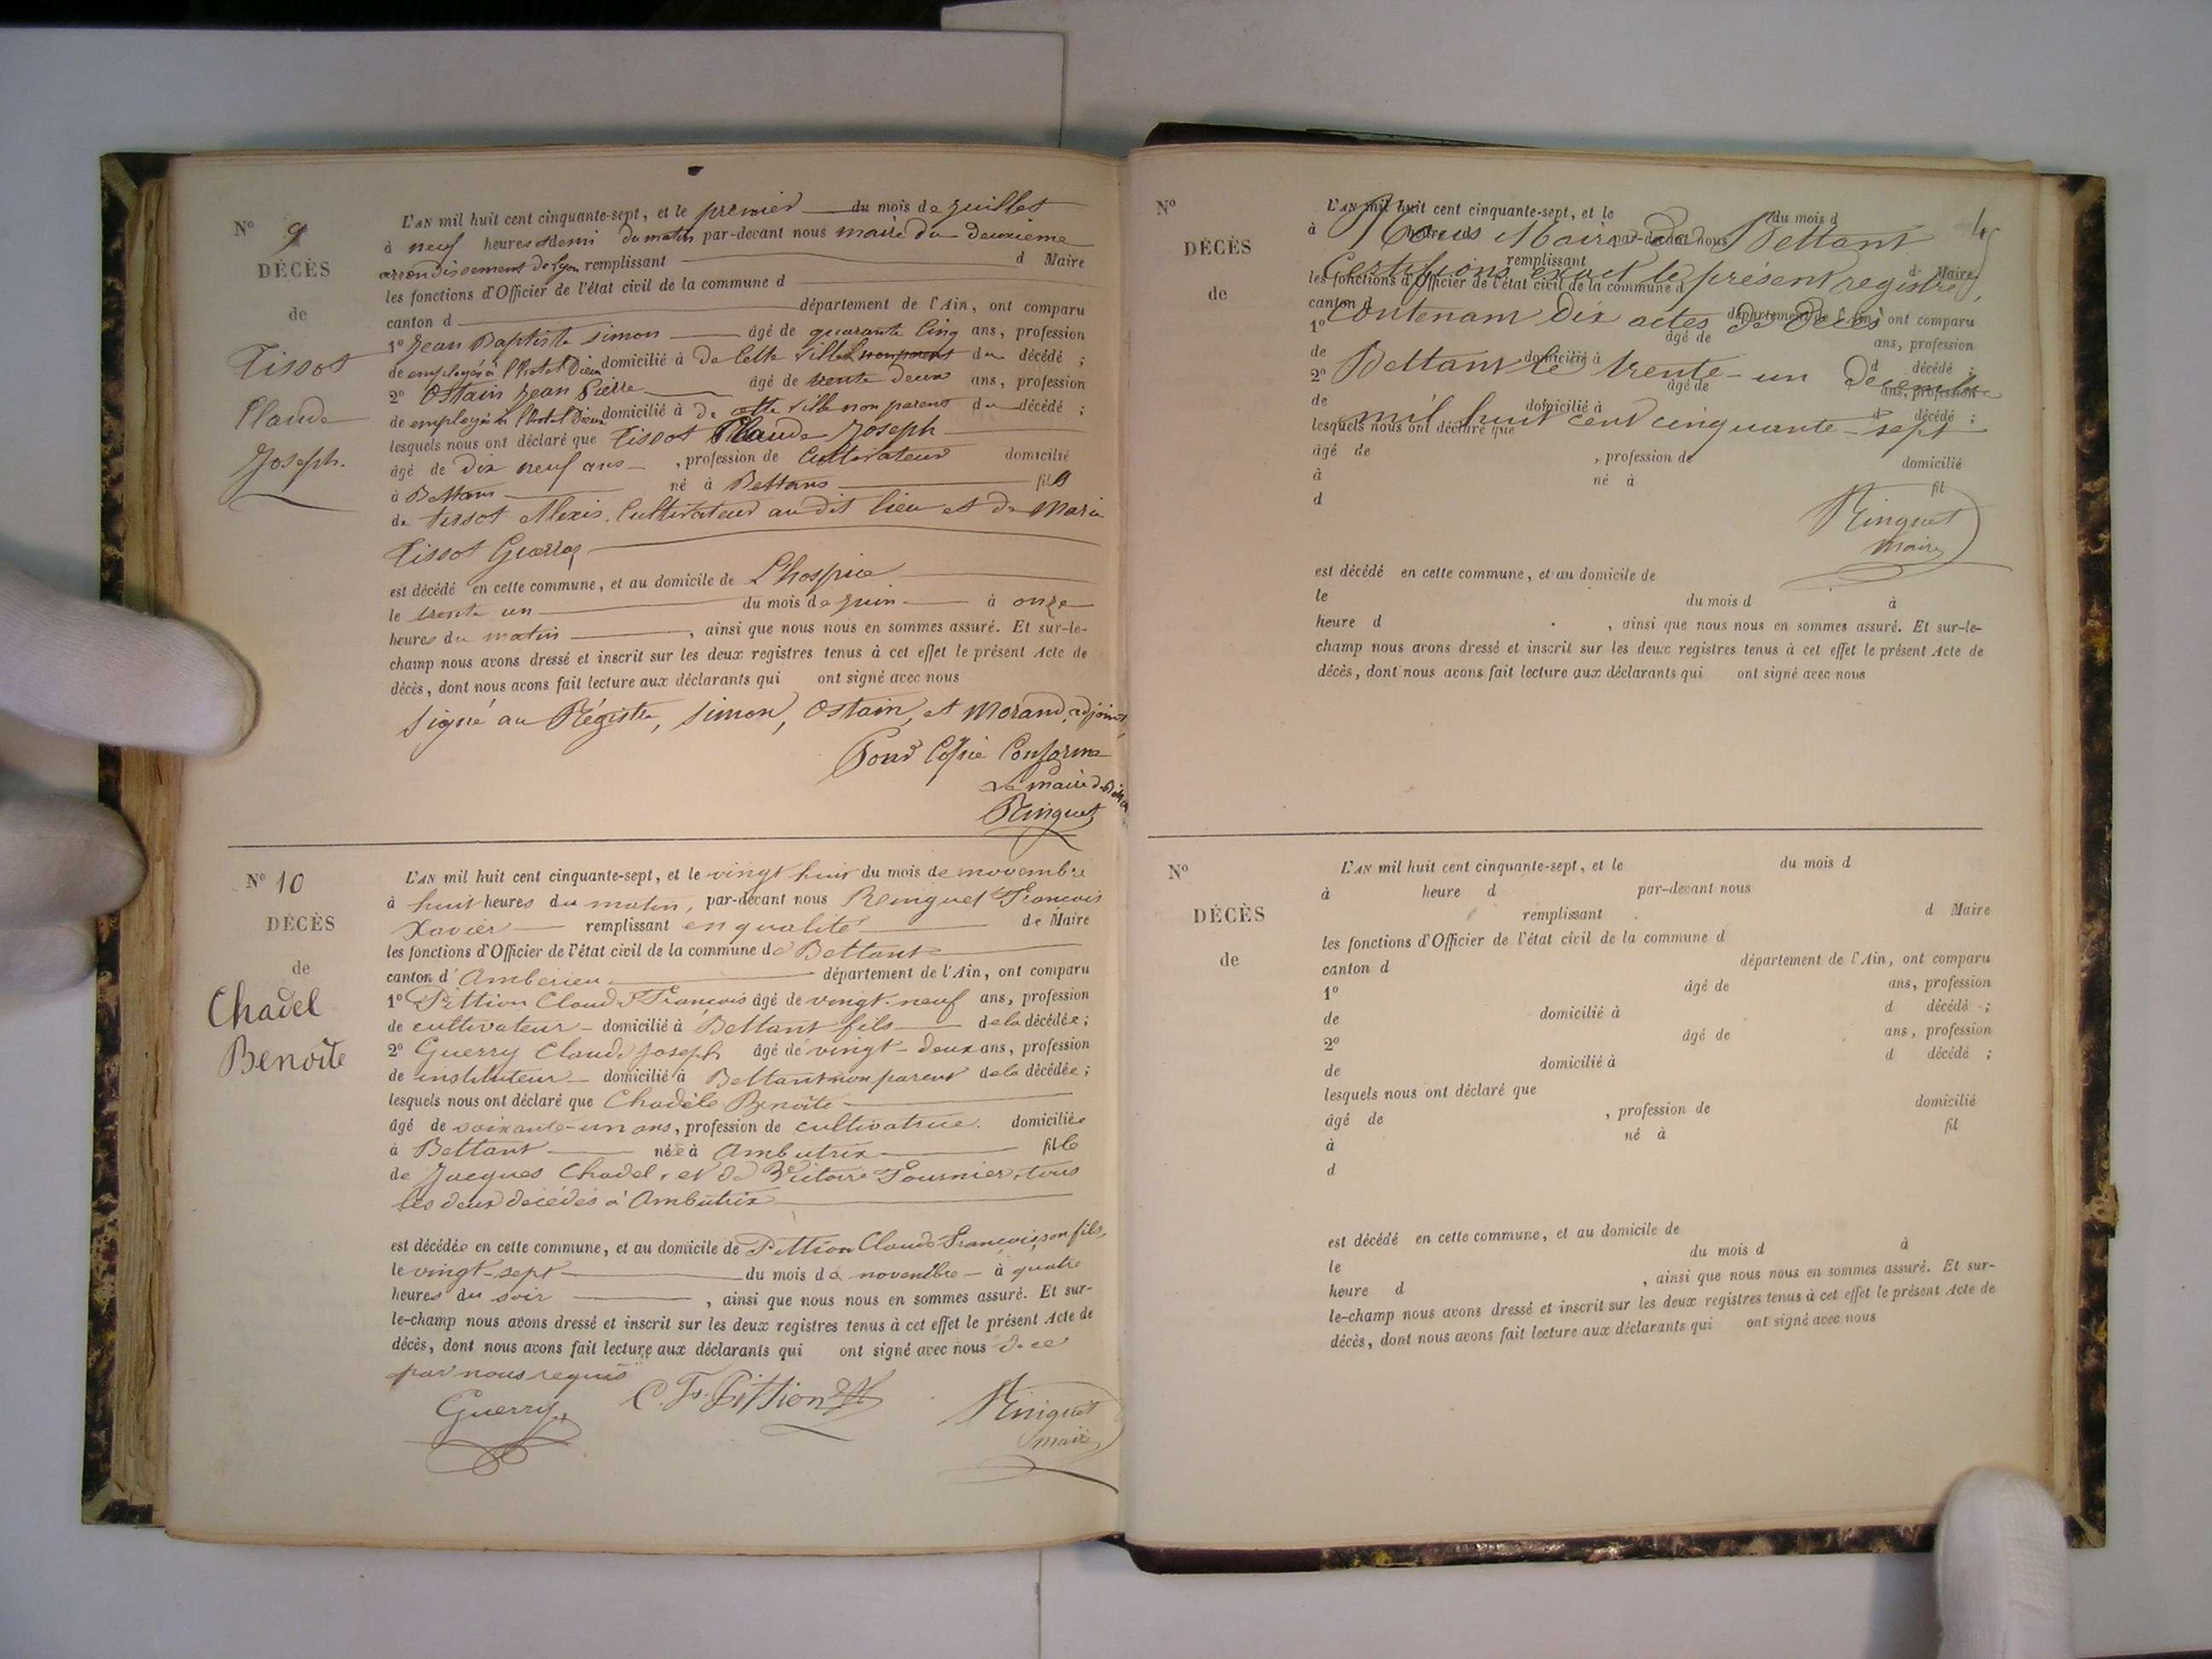 N° 9
DÉCÈS
de
Tissot
Claude
Joseph.
L'AN mil huit cent cinquante-sept, et le premier du mois de Juillet
à neuf heures et demi du matin par-devant nous maire du deuxieme
arrondissement de Lyon remplissant d Maire
les fonctions d'Officier de l'état civil de la commune d
canton d département de l'Ain, ont comparu
1° Jean Baptiste Simon âgé de quarante Cinq ans, profession
de employé à l'hotel Dieu domicilié à de Cette Ville non parent du décédé ;
2° Ostain Jean Pierre âgé de trente deux ans, profession
de employé à l'hotel Dieu domicilié à de cette Ville non parent du décédé ;
lesquels nous ont déclaré que Tissot Claude Joseph
âgé de dix neuf ans , profession de Cultivateur domicilié
à Bettans né à Bettans fils
de tissot Alexis, Cultivateur au dit lieu et de Marie
Tissot
est décédé en cette commune, et au domicile de L'hospice
le trente un du mois de Juin à onze
heures du matin , ainsi que nous nous en sommes assuré. Et sur-le-
champ nous avons dressé et inscrit sur les deux registres tenus à cet effet le présent Acte de
décès, dont nous avons fait lecture aux déclarants qui ont signé avec nous
Signé au Régistre, Simon, Ostain, et Morand, adjoint,
Pour Copie Conforme
Le maire de
Ringuet
N° 10
DÉCÈS
de
Chadel
Benoîte
L'AN mil huit cent cinquante-sept, et le vingt huit du mois de novembre
à huit heures du matin, par-devant nous Reinguet François
Xavier remplissant en qualité de Maire
les fonctions d'Officier de l'état civil de la commune de Bettant
canton d'Ambérieu département de l'Ain, ont comparu
1° Pittion Claude François âgé de vingt-neuf ans, profession
de cultivateur domicilié à Bettant fils de la décédée ;
2° Guerry Claude Joseph âgé de vingt-deux ans, profession
de instituteur domicilié à Bettant non parent de la décédée ;
lesquels nous ont déclaré que Chadèle Benoîte
âgé de soixante-un ans, profession de cultivatrice. domiciliée
à Bettant née à Ambutrix fille
de Jacques Chadel, et de Victoire Fournier, tous
les deux décédés à Ambutrix
est décédée en cette commune, et au domicile de Pittion Claude François son fils,
le vingt-sept du mois de novembre à quatre
heures du soir , ainsi que nous nous en sommes assuré. Et sur-
le-champ nous avons dressé et inscrit sur les deux registres tenus à cet effet le présent Acte de
décès, dont nous avons fait lecture aux déclarants qui ont signé avec nous de ce
par nous requis
Guerry C. F. Pittion Ringuet
maire
N°
DÉCÈS
de
L'AN mil huit cent cinquante-sept, et le du mois d
à heure d par-devant nous
remplissant d Maire
les fonctions d'Officier de l'état civil de la commune d
canton d département de l'Ain, ont comparu
1° âgé de ans, profession
de domicilié à d décédé ;
2° âgé de ans, profession
de domicilié à d décédé ;
lesquels nous ont déclaré que
âgé de , profession de domicilié
à né à fil
d
Nous Maire de Bettant
Certifions exact le présent registre,
Contenant Dix actes de Décès
Bettant le trente-un Décembre
mil huit cent cinquante-sept
Ringuet
maire
est décédé en cette commune, et au domicile de
le du mois d à
heure d , ainsi que nous nous en sommes assuré. Et sur-le-
champ nous avons dressé et inscrit sur les deux registres tenus à cet effet le présent Acte de
décès, dont nous avons fait lecture aux déclarants qui ont signé avec nous
N°
DÉCÈS
de
L'AN mil huit cent cinquante-sept, et le du mois d
à heure d par-devant nous
remplissant d Maire
les fonctions d'Officier de l'état civil de la commune d
canton d département de l'Ain, ont comparu
1° âgé de ans, profession
de domicilié à d décédé ;
2° âgé de ans, profession
de domicilié à d décédé ;
lesquels nous ont déclaré que
âgé de , profession de domicilié
à né à fil
d
est décédé en cette commune, et au domicile de
le du mois d à
heure d , ainsi que nous nous en sommes assuré. Et sur-
le-champ nous avons dressé et inscrit sur les deux registres tenus à cet effet le présent Acte de
décès, dont nous avons fait lecture aux déclarants qui ont signé avec nous